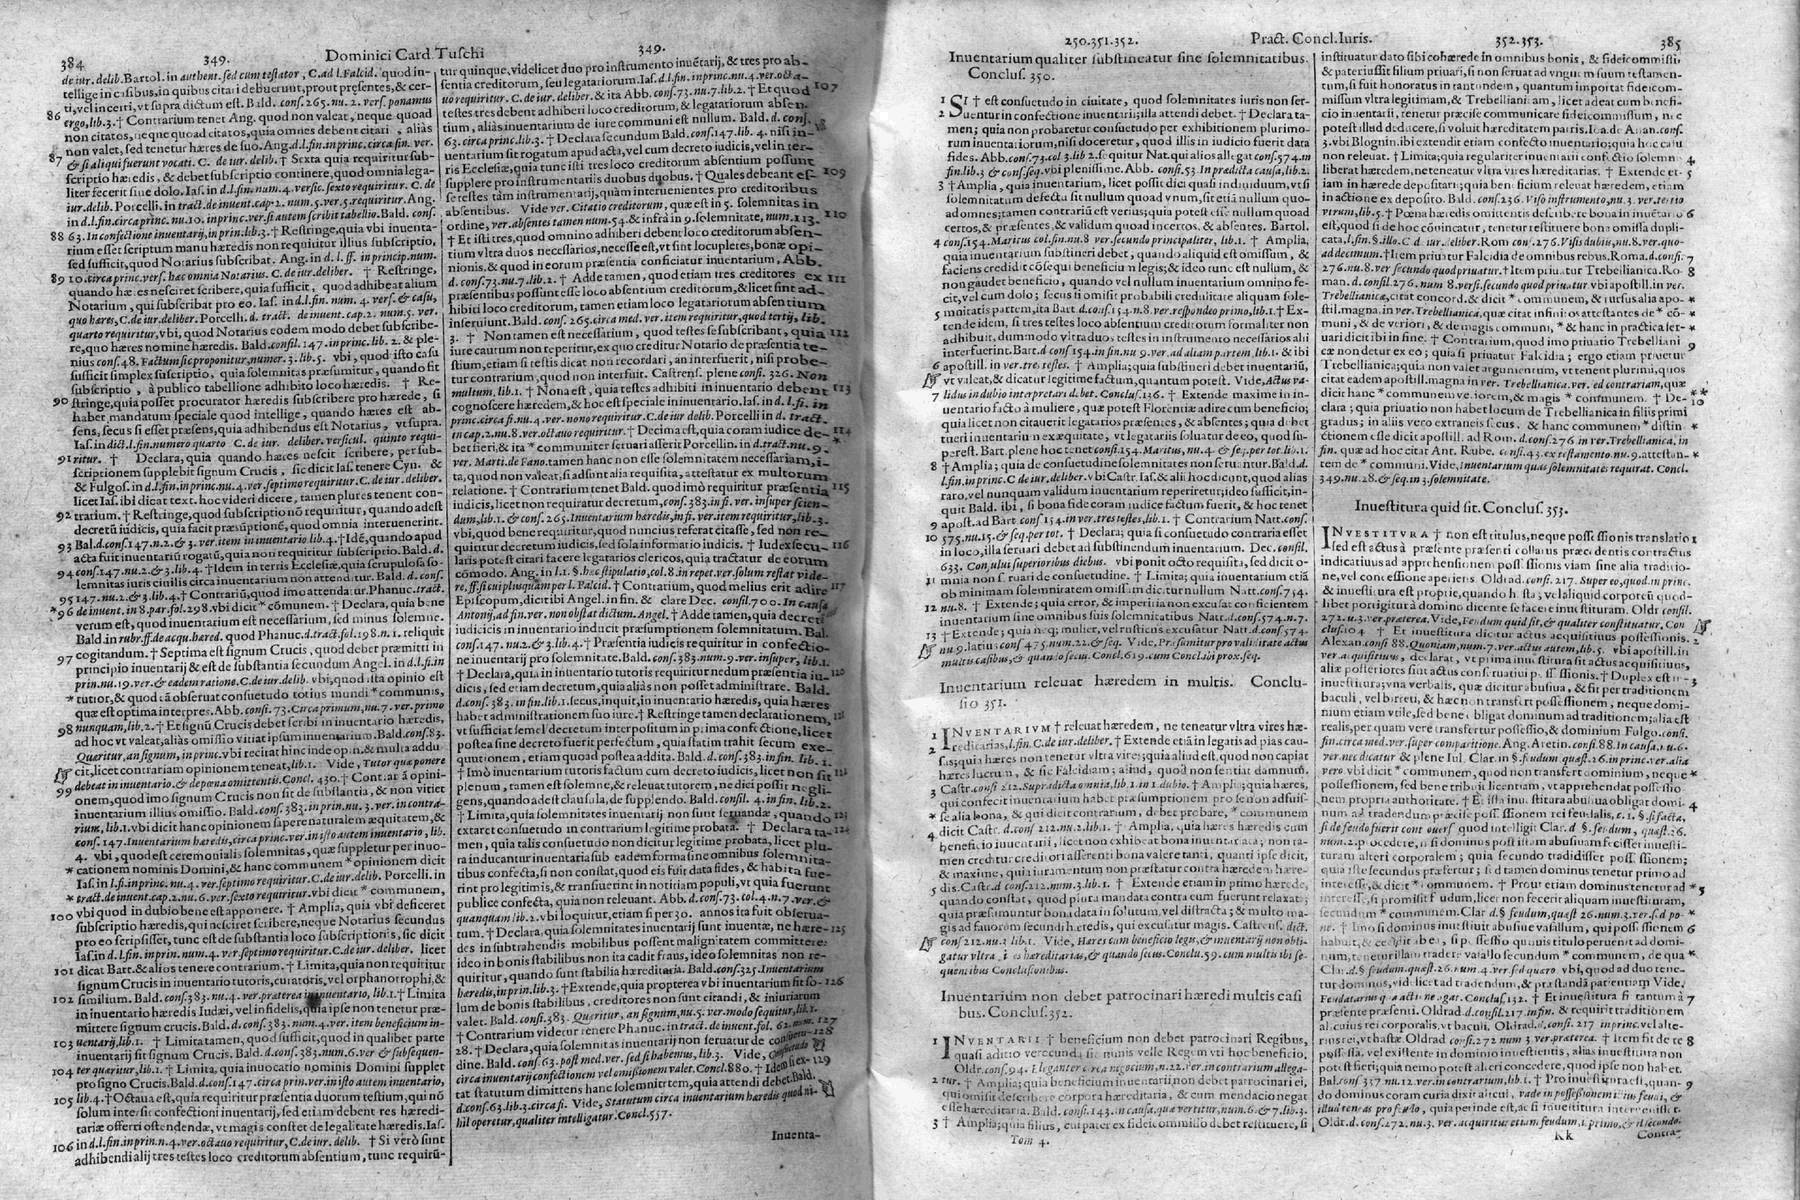 384 349. Dominici Card. Tuschi 349.
de iur. delib. Bartol. in authent. sed cum testator, C. ad l. Falcid. quod in-
tellige in casibus, in quibus citari debuerunt, prout præsentes, & cer-
ti, vel incerti, vt supra dictum est. Bald. cons. 265. nu. 2. vers. ponamus
86 ergo, lib. 3. † Contrarium tenet Ang. quod non valeat, neque quoad
non citatos, neque quoad citatos, quia omnes debent citari, aliàs
non valet, sed tenetur hæres de suo. Ang. d. l. fin. in princ. circa fin. ver.
87 & si aliqui fuerunt vocati. C. de iur. delib. † Sexta quia requiritur sub-
scriptio hæredis, & debet subscriptio continere, quod omnia lega-
liter fecerit sine dolo. Ias. in d. l. fin. num. 4. versic. sexto requiritur. C. de
iur. delib. Porcelli. in tract. de inuent. cap. 2. num. 5. ver. 5. requiritur. Ang.
in d. l. fin. circa princ. nu. 10. in princ. ver. si autem scribit tabellio. Bald. cons.
88 63. In confectione inuentarij, in prin. lib. 3. † Restringe, quia vbi inuenta-
rium esset scriptum manu hæredis non requiritur illius subscriptio,
sed sufficit, quod Notarius subscribat. Ang. in d. l. ff. in princip. num.
89 10. circa princ. vers. hæc omnia Notarius. C. de iur. deliber. † Restringe,
quando hæres nesciret scribere, quia sufficit, quod adhibeat alium
Notarium, qui subscribat pro eo. Ias. in d. l. fin. num. 4. vers. & casu,
quo hæres, C. de iur. deliber. Porcelli. d. tract. de inuent. cap. 2. num. 5. ver.
quarto requiritur, vbi, quod Notarius eodem modo debet subscribe-
re, quo hæres nomine hæredis. Bald. consil. 147. in princ. lib. 2. & ple-
nius cons. 48. Factum sic proponitur, numer. 3. lib. 5. vbi, quod isto casu
sufficit simplex subscriptio, quia solemnitas præsumitur, quando fit
subscriptio, à publico tabellione adhibito loco hæredis. † Re-
90 stringe, quia posset procurator hæredis subscribere pro hærede, si
haberet mandatum speciale quod intellige, quando hæres est ab-
sens, secus si esset præsens, quia adhibendus est Notarius, vt supra.
Ias. in dict. l. fin. numero quarto C. de iur. deliber. versicul. quinto requi-
91 ritur. † Declara, quia quando hæres nescit scribere, per sub-
scriptionem supplebit signum Crucis, sic dicit Ias. tenere Cyn. &
& Fulgos. in d. l. fin. in princ. nu. 4. ver. septimo requiritur. C. de iur. deliber.
licet Ias. ibi dicat text. hoc videri dicere, tamen plures tenent con-
92 trarium. † Restringe, quod subscriptio nõ requiritur, quando adest
decretũ iudicis, quia facit præsũptionẽ, quod omnia interuenerint.
93 Bal. d. cons. 147. n. 2. & 3. ver. item in inuentario lib. 4. † Idẽ, quando apud
acta fuit inuentariũ rogatũ, quia non requiritur subscriptio. Bald. d.
94 cons. 147. nu. 2. & 3. lib. 4. † Idem in terris Ecclesiæ, quia scrupulosa so-
lemnitas iuris ciuilis circa inuentarium non attenditur. Bald. d. cons.
95 147. nu. 2. & 3. lib. 4. † Contrariũ, quod imo attendatur. Phanuc. tract.
*96 de inuent. in 8. par. fol. 298. vbi dicit * cõmunem. † Declara, quia bene
verum est, quod inuentarium est necessarium, sed minus solemne.
Bald. in rubr. ff. de acqu. hæred. quod Phanuc. d. tract. fol. 198. n. 1. reliquit
97 cogitandum. † Septima est signum Crucis, quod debet præmitti in
principio inuentarij & est de substantia secundum Angel. in d. l. fi. in
prin. nu. 19. ver. & eadem ratione. C. de iur. delib. vbi, quod ista opinio est
* tutior, & quod ita obseruat consuetudo totius mundi * communis,
quæ est optima interpres. Abb. cons. 73. Circa primum, nu. 7. ver. primo
98 nunquam, lib. 2. † Et signũ Crucis debet scribi in inuentario hæredis,
ad hoc vt valeat, aliàs omissio vitiat ipsum inuentarium. Bald. cons. 83.
Quæritur, an signum, in princ. vbi recitat hinc inde op.n. & multa addu
cit, licet contrariam opinionem teneat, lib. 1. Vide, Tutor quæ ponere
debeat in inuentario. & de pœna omittentis. Concl. 430. † Contrariã opini-
99 onem, quod imo signum Crucis non sit de substantia, & non vitiet
inuentarium illius omissio. Bald. cons. 383. in prin. nu. 3. ver. in contra-
rium, lib. 1. vbi dicit hanc opinionem sapere naturalem æquitatem, &
cons. 147. Inuentarium hæredis, circa princ. ver. in isto autem inuentario, lib.
4. vbi, quod est ceremonialis solemnitas, quæ suppletur per inuo-
* cationem nominis Domini, & hanc communem * opinionem dicit
Ias. in l. fi. in princ. nu. 4. ver. septimo requiritur. C. de iur. delib. Porcelli. in
* tract. de inuent. cap. 2. nu. 6. ver. sexto requiritur. vbi dicit * communem,
100 vbi quod in dubio bene est apponere. † Amplia, quia vbi deficeret
subscriptio hæredis, qui nesciret scribere, neque Notarius secundus
pro eo scripsisset, tunc est de substantia loco subscriptionis, sic dicit
Ias. in d. l. fin. in prin. num. 4. ver. septimo requiritur. C. de iur. deliber. licet
101 dicat Bart. & alios tenere contrarium. † Limita, quia non requiritur
signum Crucis in inuentario tutoris, curatoris, vel orphanotrophi, &
102 similium. Bald. cons. 383. nu. 4. ver. præterea in inuentario, lib. 1. † Limita
in inuentario hæredis Iudæi, vel infidelis, quia ipse non tenetur præ-
mittere signum crucis. Bald. d. cons. 383. num. 4. ver. item beneficium in-
103 uentarij, lib. 1. † Limita tamen, quod sufficit, quod in qualibet parte
inuentarij sit signum Crucis. Bald. d. cons. 383. num. 6. ver & subsequen-
104 ter quæritur, lib. 1. † Limita, quia inuocatio nominis Domini supplet
pro signo Crucis. Bald. d. cons. 147. circa prin. ver. in isto autem inuentario,
105 lib. 4. † Octaua est, quia requiritur præsentia duorum testium, qui nõ
solum interesse confectioni inuentarij, sed etiam debent res hæredi-
tariæ offerri ostendendæ, vt magis constet de legalitate hæredis. Ias.
106 in d. l. fin. in prin. n. 4. ver. octauo requiritur, C. de iur. delib. † Si verò sunt
adhibendi alij tres testes loco creditorum absentium, tunc requirũ-
tur quinque, videlicet duo pro instrumento inuẽtarij, & tres pro ab-
sentia creditorum, seu legatariorum. Ias. d. l. fin. in princ. nu. 4. ver. octa-
uo requiritur. C. de iur. deliber. & ita Abb. cons. 73. nu. 7. lib. 2. † Et quod 107
testes tres debent adhiberi loco creditorum, & legatariorum absen-
tium, aliàs inuentarium de iure communi est nullum. Bald. d. cons.
63. circa princ. lib. 3. † Declara secundum Bald. cons. 147. lib. 4. nisi in-
uentarium sit rogatum apud acta, vel cum decreto iudicis, vel in ter-
ris Ecclesiæ, quia tunc isti tres loco creditorum absentium possunt
supplere pro instrumentarijs duobus duobus. † Quales debeant es- 109
se testes tàm instrumentarij, quàm interuenientes pro creditoribus
absentibus. Vide ver. Citatio creditorum, quæ est in 5. solemnitas in
ordine, ver. absentes tamen num. 54. & infrà in 9. solemnitate, num. 113. 110
† Et isti tres, quod omnino adhiberi debent loco creditorum absen-
tium vltra duos necessarios, necesse est, vt sint locupletes, bonæ opi-
nionis. & quod in eorum præsentia conficiatur inuentarium, Abb.
d. cons. 73. nu. 7. lib. 2. † Adde tamen, quod etiam tres creditores ex 111
præsentibus possunt esse loco absentium creditorum, & licet sint ad-
hibiti loco creditorum, tamen etiam loco legatariorum absentium
inseruiunt. Bald. cons. 265. circa med. ver. item requiritur, quod tertij, lib.
3. † Non tamen est necessarium, quod testes se subscribant, quia 112
iure cautum non reperitur, ex quo creditur Notario de præsentia te-
stium, etiam si testis dicat non recordari, an interfuerit, nisi probe-
tur contrarium, quod non interfuit. Castrens. plene consi. 326. Non
multum, lib. 1. † Nona est, quia testes adhibiti in inuentario debent 113
cognoscere hæredem, & hoc est speciale in inuentario. Ias. in d. l. fi. in
princ. circa fi. nu. 4. ver. nono requiritur. C. de iur. deliber. Porcelli in d. tract.
in cap. 2. nu. 8. ver. octauo requiritur. † Decima est, quia coram iudice de- 114
bet fieri, & ita * communiter seruari asserit Porcellin. in d. tract. nu. 9. *
ver. Marti. de Fano. tamen hanc non esse solemnitatem necessariam, i-
ta, quod non valeat, si adsunt alia requisita, attestatur ex multorum
relatione. † Contrarium tenet Bald. quod imò requiritur præsentia 115
iudicis, licet non requiratur decretum, cons. 383. in fi. ver. insuper scien-
dum, lib. 1. & cons. 265. Inuentarium hæredis, in fi. ver. item requiritur, lib. 3.
vbi, quod bene requiritur, quod nuncius referat citasse, sed non re-
quiritur decretum iudicis, sed sola informatio iudicis. † Iudex secu- 116
laris potest citari facere legatarios clericos, quia tractatur de eorum
cõmodo. Ang. in l. 1. §. hæc stipulatio, col. 8. in repet. ver. solum restat vide-
re. ff. si cui plus quàm per l. Falcid. † Contrarium, quod melius erit adire 117
Episcopum, dicit ibi Angel. in fin. & clare Dec. consil. 700. In causa
Antonij, ad fin. ver. non obstat dictum. Angel. † Adde tamen, quia decreti
iudicis in inuentario inducit præsumptionem solemnitatum. Bal.
cons. 147. nu. 2. & 3. lib. 4. † Præsentia iudicis requiritur in confectio-
ne inuentarij pro solemnitate. Bald. cons. 383. num. 9. ver. insuper, lib. 1.
† Declara, quia in inuentario tutoris requiritur nedum præsentia iu-
dicis, sed etiam decretum, quia aliàs non posset administrare. Bald.
d. cons. 383. in fin. lib. 1. secus, inquit, in inuentario hæredis, quia hæres
habet administrationem suo iure. † Restringe tamen declarationem,
vt sufficiat semel decretum interpositum in prima confectione, licet
postea sine decreto fuerit perfectum, quia statim trahit secum exe-
quutionem, etiam quoad postea addita. Bald. d. cons. 383. in fin. lib. 1.
† Imò inuentarium tutoris factum cum decreto iudicis, licet non sit
plenum, tamen est solemne, & releuat tutorem, ne dici possit negli-
gens, quando adest clausula, de supplendo. Bald. consil. 4. in fin. lib. 2.
† Limita, quia solemnitates inuentarij non sunt seruandæ, quando 123
extaret consuetudo in contrarium legitime probata. † Declara ta- 124
men, quia talis consuetudo non dicitur legitime probata, licet plu-
ra inducantur inuentaria sub eadem forma sine omnibus solemnita-
tibus confecta, si non constat, quod eis fuit data fides, & habita fue-
rint pro legitimis, & transiuerint in notitiam populi, vt quia fuerunt
publice confecta, quia non releuant. Abb. d. cons. 73. col. 4. n. 7. ver. &
quanquam lib. 2. vbi loquitur, etiam si per 30. annos ita fuit obserua-
tum. † Declara, quia solemnitates inuentarij sunt inuentæ, ne hære- 125
des in subtrahendis mobilibus possent malignitatem committere:
ideo in bonis stabilibus non ita cadit fraus, ideo solemnitas non re-
quiritur, quando sunt stabilia hæreditaria. Bald. cons. 325. Inuentarium
hæredis, in prin. lib. 3. † Extende, quia propterea vbi inuentarium fit so- 126
lum de bonis stabilibus, creditores non sunt citandi, & iniuriarum
valet. Bald. consi. 383. Quæritur, an signum, nu. 5. ver. modo sequitur, lib. 1.
† Contrarium videtur tenere Phanuc. in tract. de inuent. fol. 62. num. 127
28. † Declara, quia solemnitas inuentarij non seruatur de consuetu- 128
dine. Bald. cons. 63. post med. ver. sed si habemus, lib. 3. Vide, Consuetudo
circa inuentarij confectionem vel omissionem valet. Concl. 880. † Idem si ex- 129
tat statutum dimittens hanc solemnitatem, quia attendi debet. Bald.
d. cons. 63. lib. 3. circa fi. Vide, Statutum circa inuentarium hæredis quod ni-
hil operetur, qualiter intelligatur. Concl. 557.
Inuenta-
250.351.352. Pract. Concl. Iuris. 352.353. 385
Inuentarium qualiter substineatur sine solemnitatibus.
Conclus. 350.
1 SI † est consuetudo in ciuitate, quod solemnitates iuris non ser-
2 uentur in confectione inuentarij; illa attendi debet. † Declara ta-
men; quia non probaretur consuetudo per exhibitionem plurimo-
rum inuentariorum, nisi doceretur, quod illis in iudicio fuerit data
fides. Abb. cons. 73. col. 3. lib. 2. sequitur Nat. qui alios allegat cons. 574. in
fin. lib. 3. & cons. seq. vbi plenissime. Abb. cons. 53. In prædicta causa, lib. 2.
3 † Amplia, quia inuentarium, licet possit dici quasi indiuiduum, vt si
solemnitatum defectu sit nullum quoad vnum, sit etiã nullum quo-
ad omnes; tamen contrariũ est verius; quia potest esse nullum quoad
certos, & præsentes, & validum quoad incertos, & absentes. Bartol.
4 cons. 154. Maritus col. fin. nu. 8. ver. secundo principaliter, lib. 1. † Amplia,
quia inuentarium substineri debet, quando aliquid est omissum, &
faciens credidit cõsequi beneficium legis; & ideo tunc est nullum, &
non gaudet beneficio, quando vel nullum inuentarium omnino fe-
cit, vel cum dolo; secus si omisit probabili credulitate aliquam sole-
5 mnitatis partem, ita Bart. d. cons. 154. n. 8. ver. respondeo primo, lib. 1. † Ex-
tende idem, si tres testes loco absentium creditorum formaliter non
adhibuit, dummodo vltra duos testes in instrumento necessarios alii
interfuerint. Bart. d. cons. 154. in fin. nu. 9. ver. ad aliam partem, lib. 1. & ibi
6 apostill. in ver. tres testes. † Amplia; quia substineri debet inuentariũ,
vt valeat, & dicatur legitime factum, quantum potest. Vide, Actus va-
7 lidus in dubio interpretari debet. Conclus. 136. † Extende maxime in in-
uentario facto à muliere, quæ potest Florentiæ adire cum beneficio;
quia licet non citauerit legatarios præsentes, & absentes; quia debet
tueri inuentarium exæquitate, vt legatariis soluatur de eo, quod su-
perest. Bart. plene hoc tenet cons. 154. Maritus, nu. 4. & seq. per tot. lib. 1.
8 † Amplia; quia de consuetudine solemnitates non seruantur. Bald. d.
l. fin. in princ. C. de iur. deliber. vbi Castr. Ias. & alii hoc dicunt, quod alias
raro, vel nunquam validum inuentarium reperiretur; ideo sufficit, in-
quit Bald. ibi, si bona fide coram iudice factum fuerit, & hoc tenet
9 apost. ad Bart. cons. 154. in ver. tres testes, lib. 1. † Contrarium Natt. cons.
10 575. nu. 15. & seq. per tot. † Declara; quia si consuetudo contraria esset
in loco, illa seruari debet ad substinendum inuentarium. Dec. consil.
633. Consului superioribus diebus. vbi ponit octo requisita, sed dicit o-
11 mnia non seruari de consuetudine. † Limita; quia inuentarium etiã
ob minimam solemnitatem omissam dicitur nullum Natt. cons. 574.
12 nu. 8. † Extende; quia error, & imperitia non excusat conficientem
inuentarium sine omnibus suis solemnitatibus Natt. d. cons. 574. n. 7.
13 † Extende; quia neq; mulier, vel rusticus excusatur Natt. d. cons. 574.
nu. 9. latius cons. 475. num. 22. & seq. Vide, Præsumitur pro validitate actus
multis casibus, & quando secus. Concl. 619. cum Concl. ibi prox. seq.
Inuentarium releuat hæredem in multis. Conclu-
sio 351.
1 INVENTARIVM † releuat hæredem, ne teneatur vltra vires hæ-
2 reditarias, l. fin. C. de iur. deliber. † Extende etiã in legatis ad pias cau-
sas; quia hæres non tenetur vltra vires; quia aliud est, quod non capiat
hæres lucrum, & sic Falcidiam; aliud, quod non sentiat damnum.
3 Castr. consi. 212. Supradicta omnia, lib. 1. in 1. dubio. † Amplia; quia hæres,
qui confecit inuentarium habet præsumptionem pro se non adfuis-
* se alia bona, & qui dicit contrarium, debet probare, * communem
4 dicit Castr. d. cons. 212. nu. 2. lib. 1. † Amplia, quia hæres habens cum
beneficio inuentarii, licet non exhibeat bona inuentariata; non ta-
men creditur creditori asserenti bona valere tanti, quanti ipse dicit,
& maxime, quia iuramentum non præstatur contra hæredem hære-
5 dis. Castr. d. cons. 212. num. 3. lib. 1. † Extende etiam in primo hærede,
quando constat, quod plura mandata contra eum fuerunt relaxata;
quia præsumuntur bona data in solutum, vel distracta; & multo ma-
gis ad fauorem secundi hæredis, qui excusatur magis. Castrens. dict.
cons. 212. nu. 3. lib. 1. Vide, Hæres cum beneficio legis, & inuentarij non obli-
gatur vltra vires hæreditarias, & quando secus. Conclu. 59. cum multis ibi se-
quentibus Conclusionibus.
Inuentarium non debet patrocinari hæredi multis casi
bus. Conclus. 352.
1 INVENTARII † beneficium non debet patrocinari Regibus,
quasi aditio verecunda sit nimis velle Regem vti hoc beneficio,
Oldr. cons. 94. Eleganter circa negocium, n. 22. ver. in contrarium allega-
2 tur. † Amplia; quia beneficium inuentarii non debet patrocinari ei,
qui omisit describere corpora hæreditaria, & cum mendacio negat
esse hæreditaria. Bald. cons. 143. in causa, quæ vertitur, num. 6. & 7. lib. 3.
3 † Amplia; quia filius, cui pater ex fideicommisso debet restituere, si
Tom 4.
instituatur dato sibi cohærede in omnibus bonis, & fideicommissi,
& pater iussit filium priuari, si non seruat ad vnguem suum testamen-
tum, si fuit honoratus in tantundem, quantum importat fideicom-
missum vltra legitimam, & Trebellianiam, licet adeat cum benefi-
cio inuentarii, tenetur præcise communicare fideicommissum, nec
potest illud deducere, si voluit hæreditatem patris. Ioa. de Anan. cons.
3. vbi Blognin. ibi extendit etiam confecto inuentario; quia hoc casu
non releuat. † Limita; quia regulariter inuentarii confectio solemn 4
liberat hæredem, ne teneatur vltra vires hæreditarias. † Extende et- 5
iam in hærede depositari; quia beneficium releuat hæredem, etiam
in actione ex deposito. Bald. cons. 236. Viso instrumento, nu. 3. ver. tertio
virum, lib. 5. † Pœna hæredis omittentis describere bona in inuentario 6
est, quod si de hoc conuincatur, tenetur restituere bona omissa dupli-
cata, l. fin. §. illo. C. d iur. deliber. Rom. cons. 276. Visis dubiis, nu. 8. ver. quo-
ad decimum. † Item priuatur Falcidia de omnibus rebus. Roma. d. cons. 7
276. nu. 8. ver. secundo quod priuatur. † Item priuatur Trebellianica. Ro- 8
man. d. cons. 276. num. 8. versi. secundo quod priuatur. vbi apostill. in ver.
Trebellianica, citat concord. & dicit * communem, & rursus alia apo- *
still. magna. in ver. Trebellianica, quæ citat infinitos attestantes de * cõ- *
muni, & de veriori, & de magis communi, * & hanc in practica ser- *
uari dicit ibi in fine. † Contrarium, quod imo priuatio Trebelliani 9
cæ non detur ex eo; quia si priuatur Falcidia; ergo etiam priuetur
Trebellianica; quia non valet argumentum, vt tenent plurimi, quos
citat eadem apostill. magna in ver. Trebellianica. ver. ed contrarium, quæ
dicit hanc * communem veriorem, & magis * communem. † De- **10
clara; quia priuatio non habet locum de Trebellianica in filiis primi
gradus; in aliis vero extraneis secus. & hanc communem * distin *
ctionem esse dicit apostill. ad Rom. d. cons. 276. in ver. Trebellianica, in
fin. quæ ad hoc citat Ant. Rube. consi. 43. ex testamento. nu. 9. attestan- *
tem de * communi. Vide, Inuentarium quas solemnitates requirat. Concl.
349. nu. 28. & seq. in 3. solemnitate.
Inuestitura quid sit. Conclus. 353.
INVESTITVRA † non est titulus, neque possessionis translatio 1
sed est actus à præsente præsenti collatus præcedentis contractus
indicatiuus ad apprehensionem possessionis viam sine alia traditio-
ne, vel concessione aperiens. Oldrad. consi. 217. Super eo, quod in princ.
& inuestitura est proprie, quando hasta, vel aliquid corporeũ quod-
libet porrigitur à domino dicente se facere inuestituram. Oldr. consil.
272. u. 3. ver. præterea. Vide, Feudum quid sit, & qualiter constituatur, Con
clus. 104 † Et inuestitura dicitur actus acquisitiuus possessionis. 2
Alexan. consi. 88. Quoniam, num. 7. ver. actus autem, lib. 5. vbi apostill. in
ver. acquisitiuus, declarat, vt prima inuestitura sit actus acquisitiuus,
aliæ posteriores sint actus conseruatiui possessionis. † Duplex est in- 3
uestitura; vna verbalis, quæ dicitur abusiua, & fit per traditionem
baculi, vel birreti, & hæc non transfert possessionem, neque domi-
nium etiam vtile, sed bene obligat dominum ad traditionem; alia est
realis, per quam vere transfertur possessio, & dominium. Fulgo. consi.
fin. circa med. ver. super comparitione. Ang. Aretin. consi. 88. In causa, nu. 6.
ver. nec dicatur & plene Iul. Clar. in §. feudum quæst. 26. in princ. ver. alia
vero vbi dicit * communem, quod non transfert dominium, neque *
possessionem, sed bene tribuit licentiam, vt apprehendat possessio-
nem propria authoritate. † Et ista inuestitura abusiua obligat domi- 4
num ad tradendum præcise possessionem rei feudalis, c. 1. §. si facta,
si de feudo fuerit cont ouers quod intelligit Clar. d. §. feudum, quæst. 26.
num. 2. procedere, nisi dominus post istam abusiuam fecisset inuesti-
turam alteri corporalem; quia secundo tradidisset possessionem;
quia iste secundus præfertur; sed tamen dominus tenetur primo ad
interesse, & dicit * communem. † Prout etiam dominus tenetur ad *5
interesse, si promisit feudum, licet non fecerit aliquam inuestituram,
secundum * communem. Clar. d. § feudum, quæst. 26. num. 3. ver. sed po- *
ne. † Imo si dominus inuestiuit abusiue vasallum, qui possessionem 6
habuit, & cœpit ab ei, si possessio quouis titulo peruenit ad domi-
num, tenetur illam tradere vasallo secundum * communem, de qua *
Clar. d. § feudum. quæst. 26. num. 4. ver. sed quæro. vbi, quod ad duo tene-
tur dominus, videlicet ad tradendum, & præstandã patientiam Vide,
Feudatarius qua actione agat. Conclus. 132. † Et inuestitura fit tantum à 7
præsente præsenti. Oldrad. d. consil. 217. in fin. & requirit traditionem
alicuius rei corporalis, vt baculi. Oldrad. d. consi. 217 in princ. vel alte-
rius rei, vt hastæ. Oldrad. consi. 272 num. 3. ver. præterea. † Item fit de re 8
possessa, vel existente in dominio inuestientis, alias inuestitura non
potest fieri; quia nemo potest alteri concedere, quod ipse non habet.
Bal. cons. 357 nu. 12. ver. in contrarium, lib. 1. † Pro inuestitura est, quan- 9
do dominus coram curia dixit alicui, vade in possessionem illius feudi, &
illud teneas pro feudo, quia perinde est, ac si inuestitura interuenisset.
Oldr. d. cons. 272. nu. 3. ver. acquiritur etiam feudum, 1. primo, & il secundo.
Kk Contra-